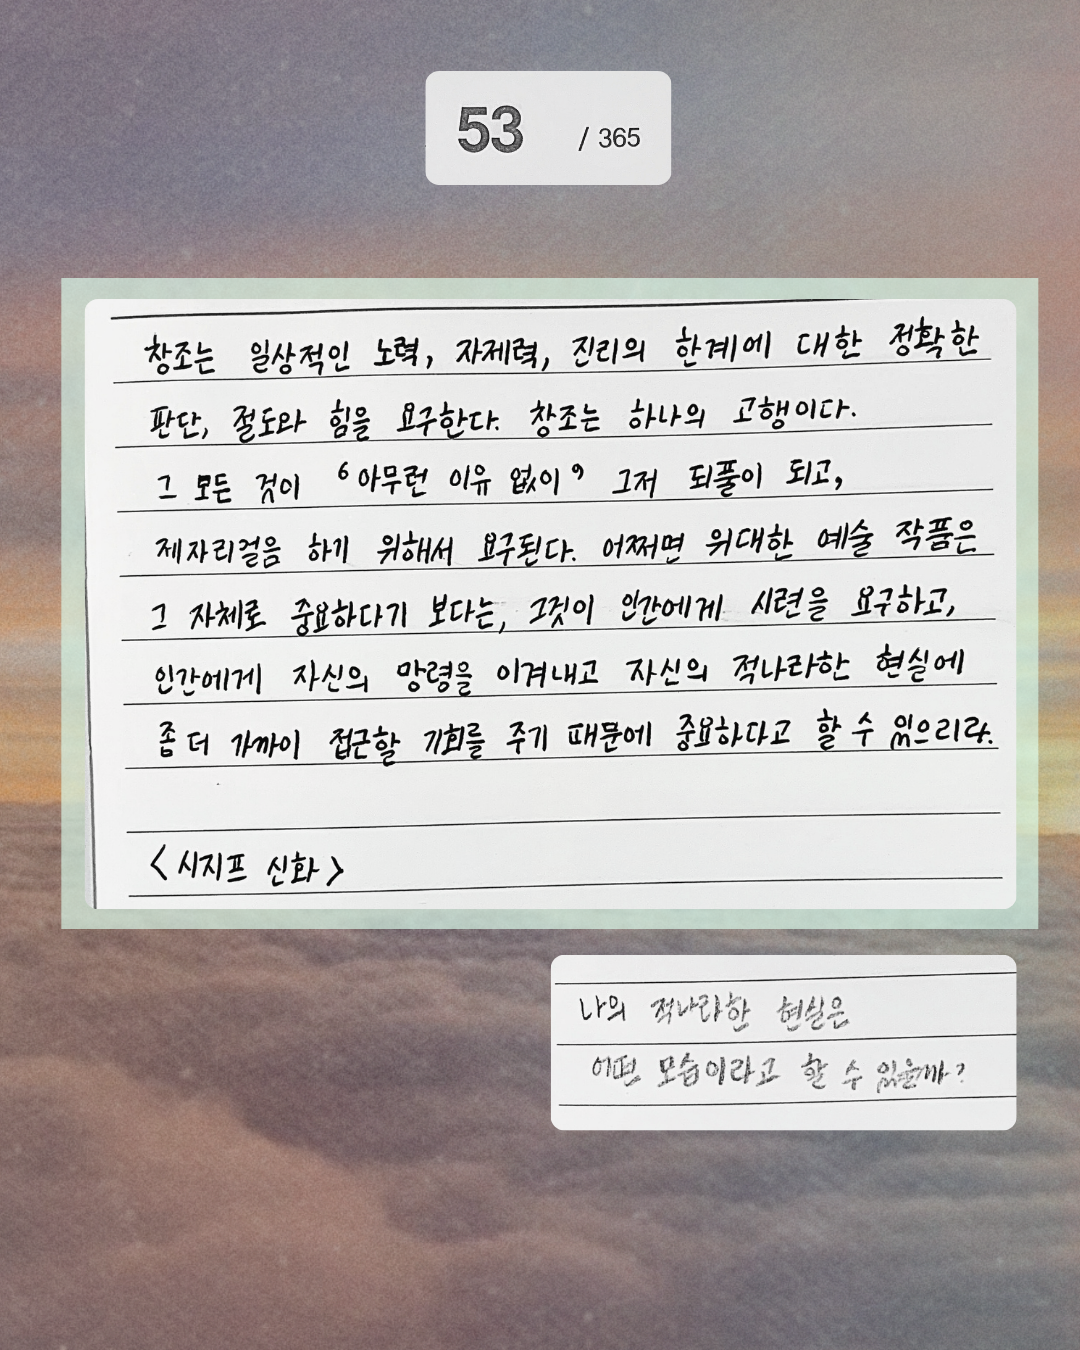 53 / 365
창조는 일상적인 노력, 자제력, 진리의 한계에 대한 정확한
판단, 절도와 힘을 요구한다. 창조는 하나의 고행이다.
그 모든 것이 ‘아무런 이유 없이’ 그저 되풀이 되고,
제자리걸음 하기 위해서 요구된다. 어쩌면 위대한 예술 작품은
그 자체로 중요하다기 보다는, 그것이 인간에게 시련을 요구하고,
인간에게 자신의 망령을 이겨내고 자신의 적나라한 현실에
좀 더 가까이 접근할 기회를 주기 때문에 중요하다고 할 수 있으리라.
<시지프 신화>
나의 적나라한 현실은
어떤 모습이라고 할 수 있을까?